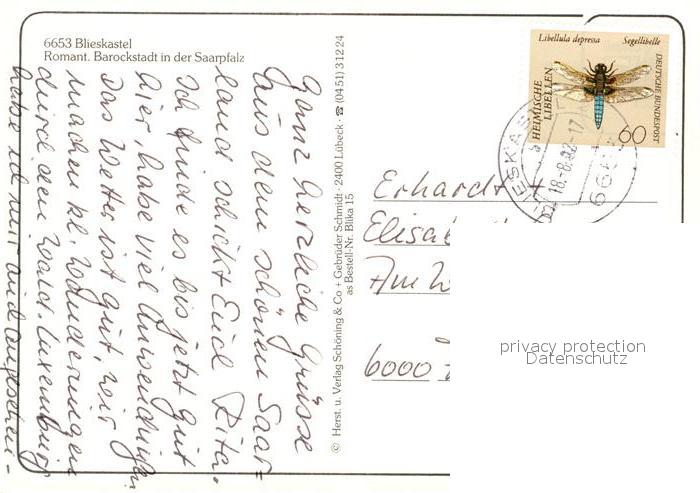 6653 Blieskastel
Romant. Barockstadt in der Saarpfalz
Ganz herzliche Grüsse
aus dem schönen Saar=
land schickt Euch Rita.
Ich finde es bis jetzt gut
hier, habe viel Anwendungen.
Das Wetter ist gut, wir
machen kl. Wanderungen
durch den Wald. Luxemburg
habe ich mir auch angesehen-
© Herst. u. Verlag Schöning & Co + Gebrüder Schmidt · 2400 Lübeck · ☎ (04 51) 3 12 24
as Bestell-Nr. Blika 15
Libellula depressa Segellibelle
HEIMISCHE
LIBELLEN
DEUTSCHE BUNDESPOST
60
BLIESKAS
18.-8.92-17
6653
Erhardt +
Elisab
Am W
6000
privacy protection
Datenschutz